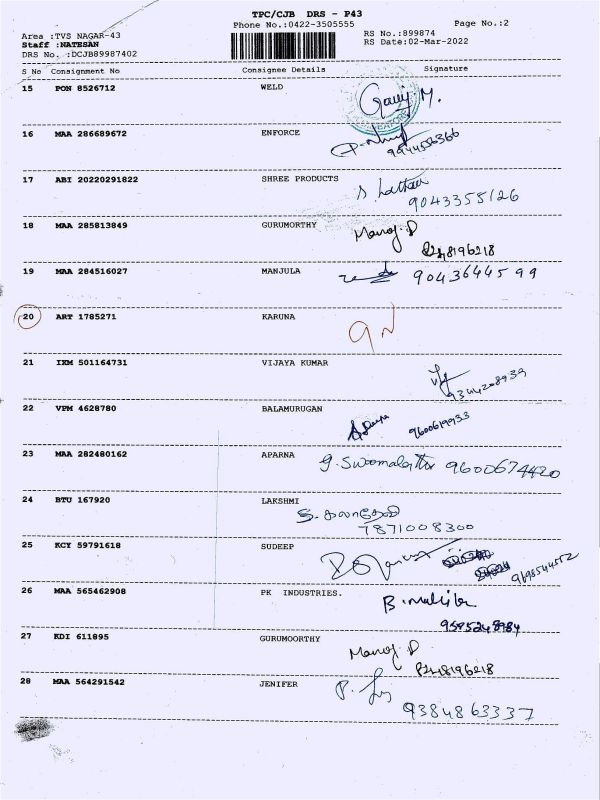 TPC/CJB DRS - P43
Phone No.:0422-3505555
Page No.:2
Area :TVS NAGAR-43
RS No.:899874
Staff :NATESAN
RS Date:02-Mar-2022
DRS No. :DCJB89987402
S No Consignment No Consignee Details Signature
15 PON 8526712 WELD
16 MAA 286689672 ENFORCE
9944556366
17 ABI 20220291822 SHREE PRODUCTS
9043355126
18 MAA 285813849 GURUMORTHY Manoj.P
8248196218
19 MAA 284516027 MANJULA 9043644599
20 ART 1785271 KARUNA
21 IXM 501164731 VIJAYA KUMAR
9344208939
22 VPM 4628780 BALAMURUGAN
9600619933
23 MAA 282480162 APARNA 9600674420
24 BTU 167920 LAKSHMI
7871008300
25 KCY 59791618 SUDEEP
26 MAA 565462908 PK INDUSTRIES.
27 KDI 611895 GURUMOORTHY Manoj.P
8248196218
28 MAA 564291542 JENIFER
9384863337